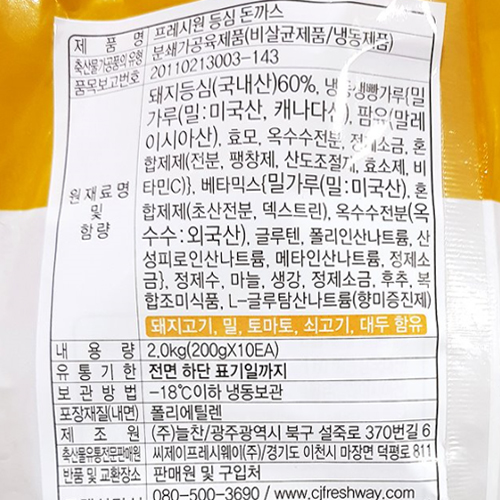 제 품 명 프레시원 등심 돈까스
축산물가공품의 유형 분쇄가공육제품(비살균제품/냉동제품)
품목보고번호 20110213003-143
원재료명 및 함량
돼지등심(국내산)60%, 냉동생빵가루{밀
가루(밀:미국산, 캐나다산), 팜유(말레
이시아산), 효모, 옥수수전분, 정제소금, 혼
합제제(전분, 팽창제, 산도조절제, 효소제, 비
타민C)}, 베타믹스{밀가루(밀:미국산), 혼
합제제(초산전분, 덱스트린), 옥수수전분(옥
수수:외국산), 글루텐, 폴리인산나트륨, 산
성피로인산나트륨, 메타인산나트륨, 정제소
금}, 정제수, 마늘, 생강, 정제소금, 후추, 복
합조미식품, L-글루탐산나트륨(향미증진제)
돼지고기, 밀, 토마토, 쇠고기, 대두 함유
내 용 량 2.0kg(200gX10EA)
유 통 기 한 전면 하단 표기일까지
보 관 방 법 -18℃이하 냉동보관
포장재질(내면) 폴리에틸렌
제 조 원 (주)늘찬/광주광역시 북구 설죽로 370번길 6
축산물유통전문판매원 씨제이프레시웨이(주)/경기도 이천시 마장면 덕평로 811
반품 및 교환장소 판매원 및 구입처
080-500-3690 / www.cjfreshway.com